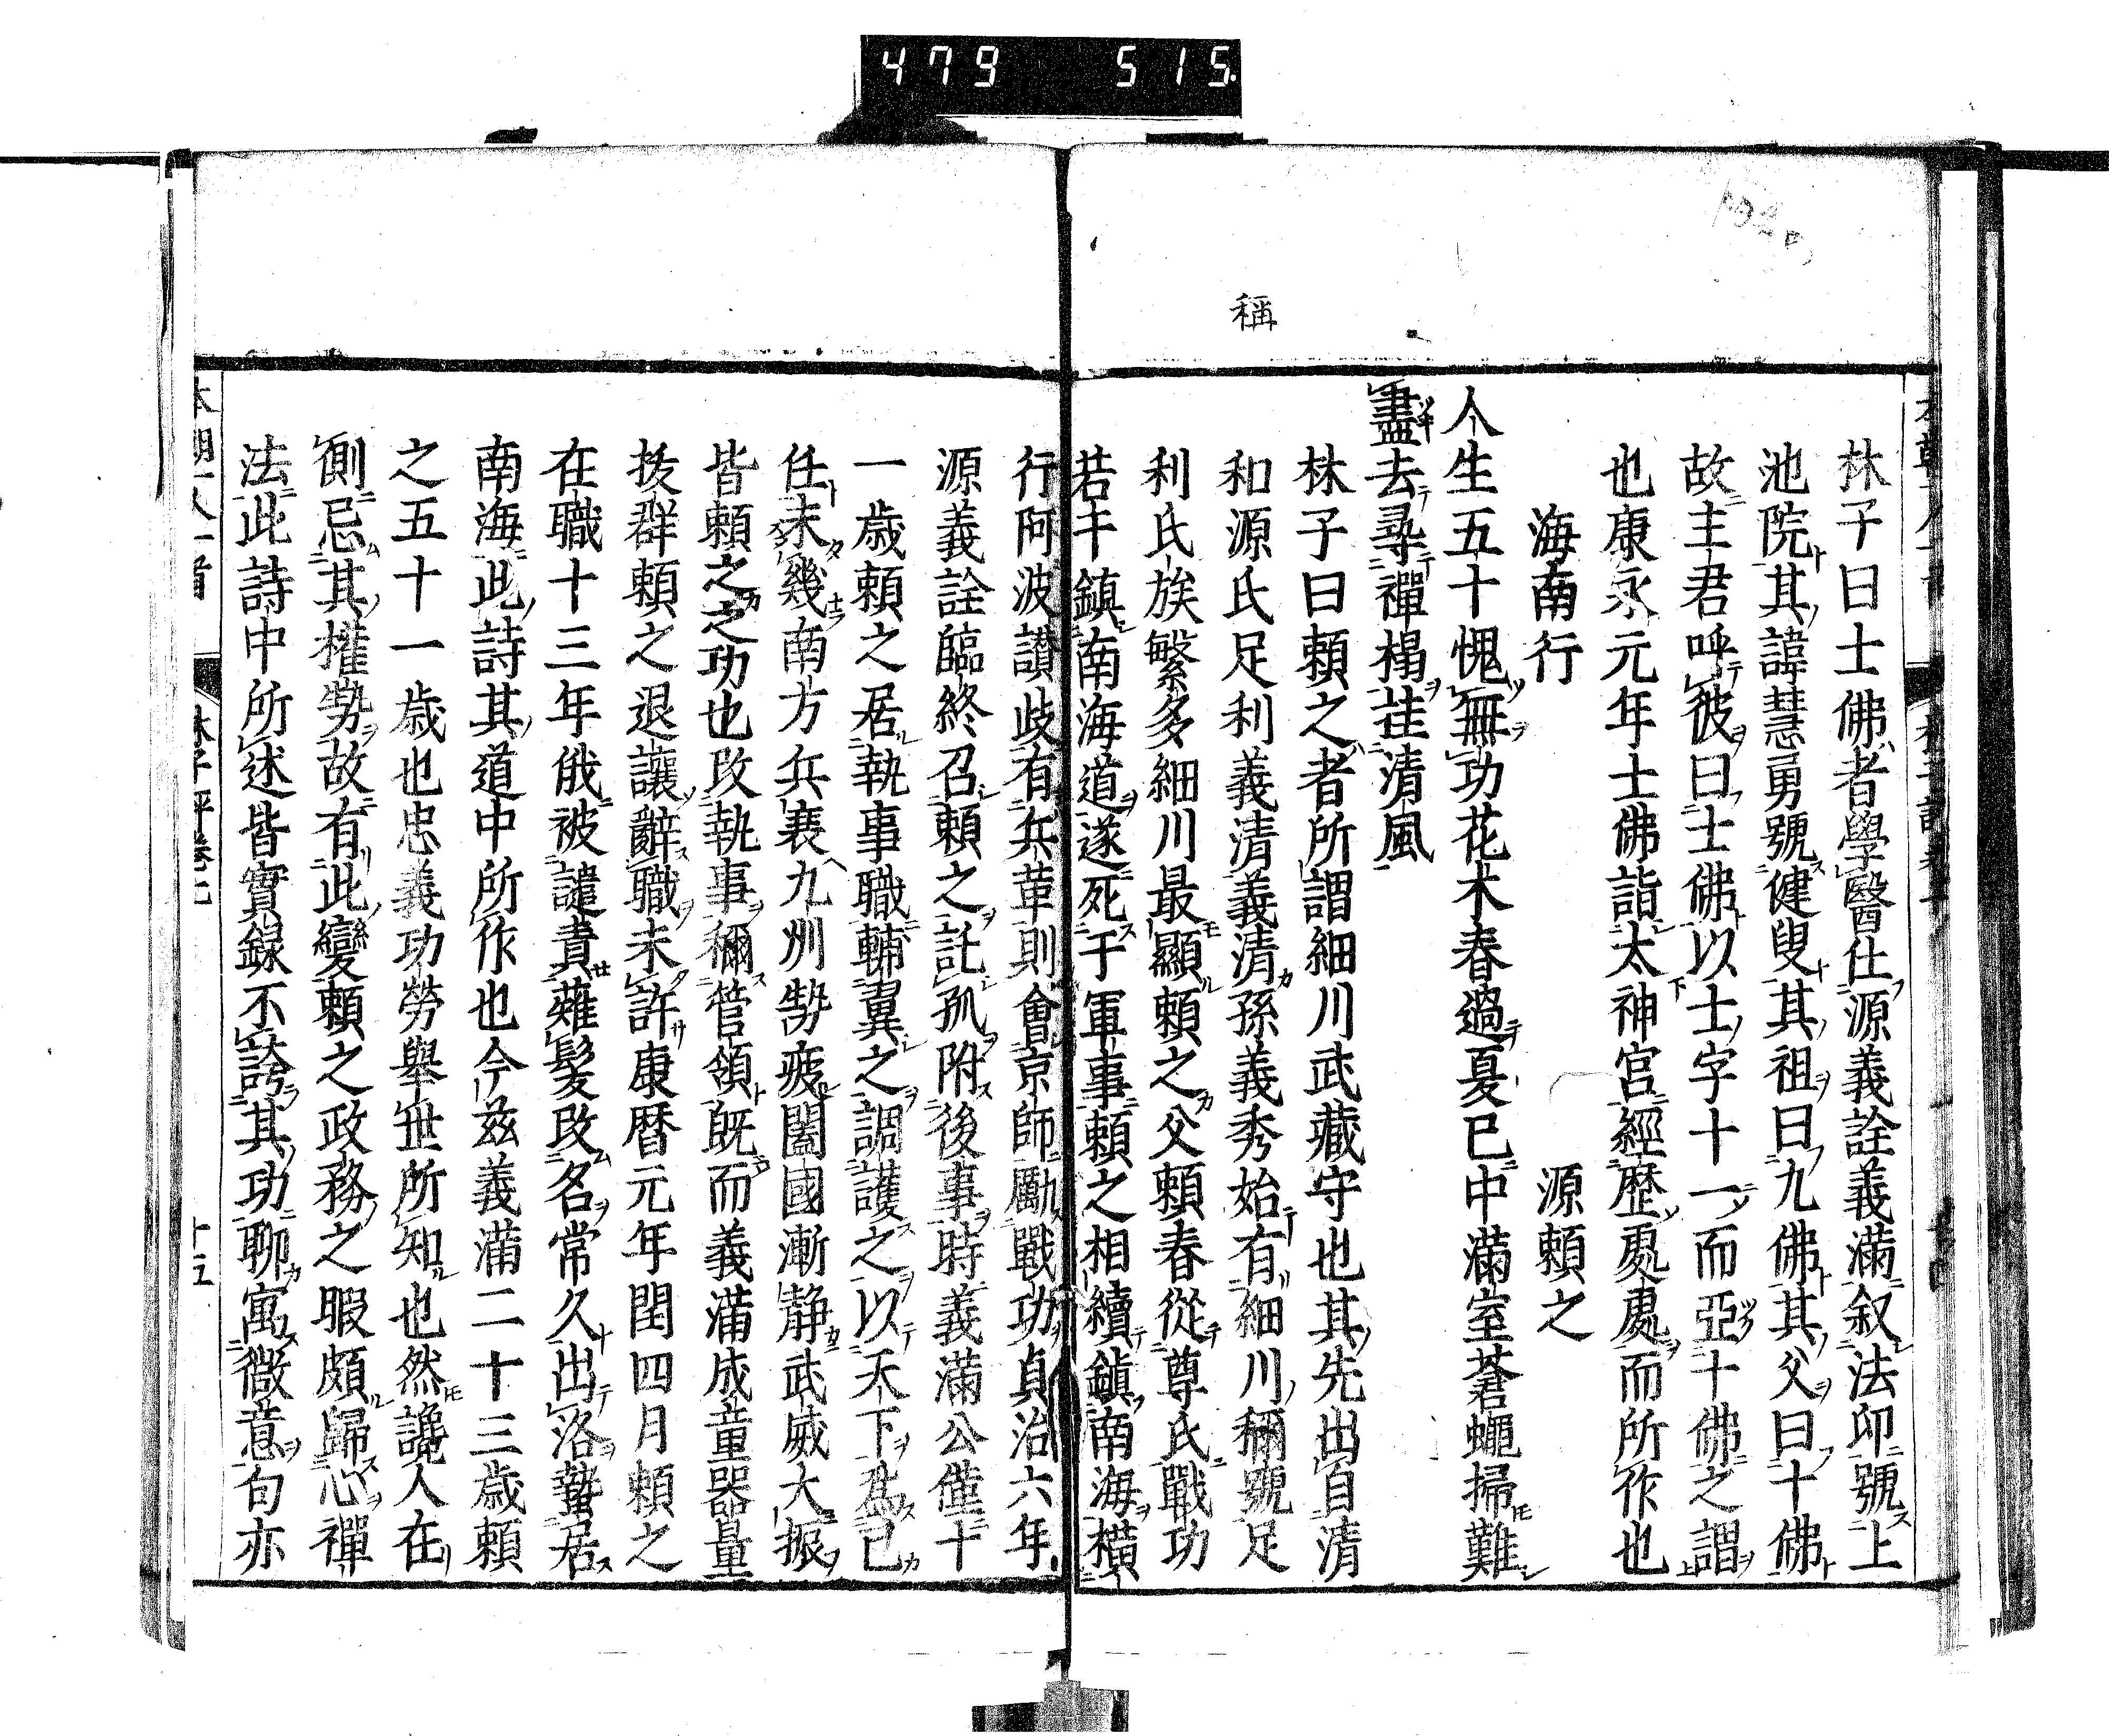 479 515
稱
林子曰士佛者學醫仕源義詮義滿叙法印號上
池院其諱慧勇號健叟其祖曰九佛其父曰十佛
故主君呼彼曰士佛以士字十一而亞十佛之謂
也康永元年士佛詣太神宮經歷處處而所作也
海南行 源頼之
人生五十愧無功花木春過夏已中滿室蒼蠅掃難
盡去尋禪榻挂清風
林子曰頼之者所謂細川武藏守也其先出自清
和源氏足利義清義清孫義秀始有細川稱號足
利氏族繁多細川最顯頼之父頼春從尊氏戰功
若干鎮南海道遂死于軍事頼之相續鎮南海橫
行阿波讃岐有兵革則會京師勵戰功貞治六年
源義詮臨終召頼之託孤附後事時義滿公僅十
一歳頼之居執事職輔翼之調護之以天下為已
任未幾南方兵衰九州勢疲闔國漸静武威大振
皆頼之之功也改執事稱管領既而義滿成童器量
拔群頼之退讓辭職未許康暦元年閏四月頼之
在職十三年俄被譴責薙髮改名常久出洛蟄居
南海此詩其道中所作也今茲義滿二十三歳頼
之五十一歳也忠義功勞舉世所知也然讒人在
側忌其權勢故有此變頼之政務之暇頗歸心禪
法此詩中所述皆實錄不誇其功聊寓微意句亦
本朝一人一首 林子評卷七 十三